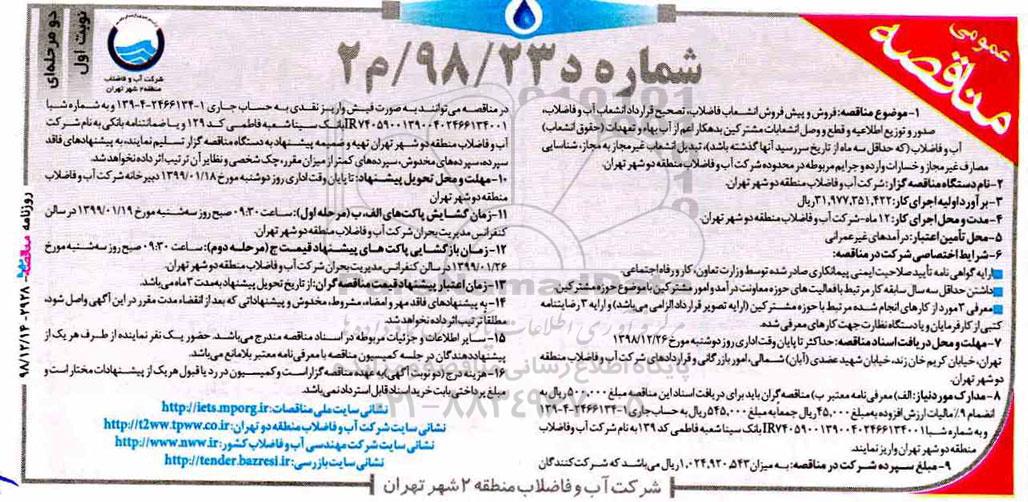 عمومی
مناقصه
شماره د۹۸/۲۳/م۲
نوبت اول
دو مرحله‌ای
شرکت آب و فاضلاب
منطقه ۲ شهر تهران
۱- موضوع مناقصه: فروش و پیش فروش انشعاب فاضلاب، تصحیح قرارداد انشعاب آب و فاضلاب،
صدور و توزیع اطلاعیه و قطع و وصل انشعابات مشترکین بدهکار اعم از آب بهاء و تعهدات (حقوق انشعاب)
آب و فاضلاب (که حداقل سه ماه از تاریخ سررسید آنها گذشته باشد)، تبدیل انشعاب غیرمجاز به مجاز، شناسایی
مصارف غیر مجاز و خسارات وارده و جرایم مربوطه در محدوده شرکت آب و فاضلاب منطقه دو شهر تهران.
۲- نام دستگاه مناقصه گزار: شرکت آب و فاضلاب منطقه دو شهر تهران.
۳- برآورد اولیه اجرای کار: ۳۱,۹۷۷,۳۵۱,۴۲۲ ریال
۴- مدت و محل اجرای کار: ۱۲ ماه- شرکت آب و فاضلاب منطقه دو شهر تهران.
۵- محل تأمین اعتبار: درآمدهای غیرعمرانی
۶- شرایط اختصاصی شرکت در مناقصه:
ارایه گواهی نامه تأیید صلاحیت ایمنی پیمانکاری صادر شده توسط وزارت تعاون، کار و رفاه اجتماعی.
داشتن حداقل سه سال سابقه کار مرتبط با فعالیت های حوزه معاونت درآمد و امور مشترکین با موضوع حوزه مشترکین
معرفی ۳ مورد از کارهای انجام شده مرتبط با حوزه مشترکین (ارایه تصویر قرارداد الزامی می‌باشد) و ارایه ۳ رضایتنامه
کتبی از کارفرمایان و یا دستگاه نظارت جهت کارهای معرفی شده.
۷- مهلت و محل دریافت اسناد مناقصه: حداکثر تا پایان وقت اداری روز دوشنبه مورخ ۱۳۹۸/۱۲/۲۶
تهران، خیابان کریم خان زند، خیابان شهید عضدی (آبان) شمالی، امور بازرگانی و قراردادهای شرکت آب و فاضلاب منطقه
دو شهر تهران.
۸- مدارک مورد نیاز: الف) معرفی نامه معتبر ب) مناقصه گران باید برای دریافت اسناد این مناقصه مبلغ ۵۰۰,۰۰۰ ریال به
انضمام ۹٪ مالیات ارزش افزوده به مبلغ ۴۵,۰۰۰ ریال جمعاً به مبلغ ۵۴۵,۰۰۰ ریال به حساب جاری ۱-۲۴۶۶۱۳۴-۴-۱۳۹
و به شماره شبا IR۷۴۰۵۹۰۰۱۳۹۰۰۴۰۲۴۶۶۱۳۴۰۰۱ بانک سینا شعبه فاطمی کد ۱۳۹ به نام شرکت آب و فاضلاب
منطقه دو شهر تهران واریز نمایند.
۹- مبلغ سپرده شرکت در مناقصه: به میزان ۱,۰۲۴,۹۲۰,۵۴۳ ریال می‌باشد که شرکت کنندگان
در مناقصه می‌توانند به صورت فیش واریز نقدی به حساب جاری ۱-۲۴۶۶۱۳۴-۴-۱۳۹ و به شماره شبا
IR۷۴۰۵۹۰۰۱۳۹۰۰۴۰۲۴۶۶۱۳۴۰۰۱ بانک سینا شعبه فاطمی کد ۱۲۹ و یا ضمانتنامه بانکی به نام شرکت
آب و فاضلاب منطقه دو شهر تهران تهیه و ضمیمه پیشنهاد به دستگاه مناقصه گزار تسلیم نمایند، به پیشنهادهای فاقد
سپرده، سپرده‌های مخدوش، سپرده‌های کمتر از میزان مقرر، چک شخصی و نظایر آن ترتیب اثر داده نخواهد شد.
۱۰- مهلت و محل تحویل پیشنهاد: تا پایان وقت اداری روز دوشنبه مورخ ۱۳۹۹/۰۱/۱۸ دبیرخانه شرکت آب و فاضلاب
منطقه دو شهر تهران
۱۱- زمان گشایش پاکت‌های الف، ب (مرحله اول): ساعت ۰۹:۳۰ صبح روز سه‌شنبه مورخ ۱۳۹۹/۰۱/۱۹ در سالن
کنفرانس مدیریت بحران شرکت آب و فاضلاب منطقه دو شهر تهران.
۱۲- زمان بازگشایی پاکت های پیشنهاد قیمت ج (مرحله دوم): ساعت ۰۹:۳۰ صبح روز سه‌شنبه مورخ
۱۳۹۹/۰۱/۲۶ در سالن کنفرانس مدیریت بحران شرکت آب و فاضلاب منطقه دو شهر تهران.
۱۳- زمان اعتبار پیشنهاد قیمت مناقصه گران: از تاریخ تحویل پیشنهاد به مدت ۳ ماه می‌باشد.
۱۴- به پیشنهادهای فاقد مهر و امضاء، مشروط، مخدوش و پیشنهاداتی که بعد از انقضاء مدت مقرر در این آگهی واصل شود،
مطلقاً ترتیب اثر داده نخواهد شد.
۱۵- سایر اطلاعات و جزئیات مربوطه در اسناد مناقصه مندرج می‌باشد. حضور یک نفر نماینده از طرف هر یک از
پیشنهاددهندگان در جلسه کمیسیون مناقصه با معرفی نامه معتبر بلامانع می‌باشد.
۱۶- هزینه درج (دو نوبت آگهی) به عهده مناقصه گزار است و کمیسیون در رد یا قبول هر یک از پیشنهادات مختار است و
مبلغ پرداختی بابت خرید اسناد قابل استرداد نمی‌باشد.
نشانی سایت ملی مناقصات: http://iets.mporg.ir
نشانی سایت شرکت آب و فاضلاب منطقه دو تهران: http://t2ww.tpww.co.ir
نشانی سایت شرکت مهندسی آب و فاضلاب کشور: http://www.nww.ir
نشانی سایت بازرسی: http://tender.bazresi.ir
شرکت آب و فاضلاب منطقه ۲ شهر تهران
روزنامه مناقصه ۲۹۲۸ - ۹۸/۱۲/۱۴
پایگاه اطلاع رسانی